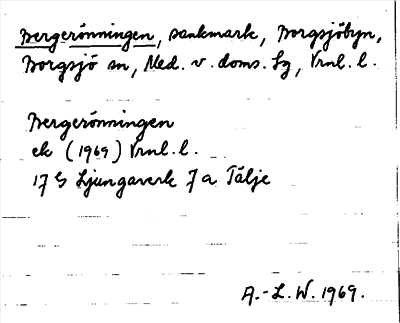 Bergerönningen, sankmark, Borgsjöbyn,
Borgsjö sn, Med. v. doms. Lg, Vrnl. l.
Bergerönningen
ek (1969) Vrnl. l.
17 G Ljungaverk 7 a Tälje
A.-L. W. 1969.